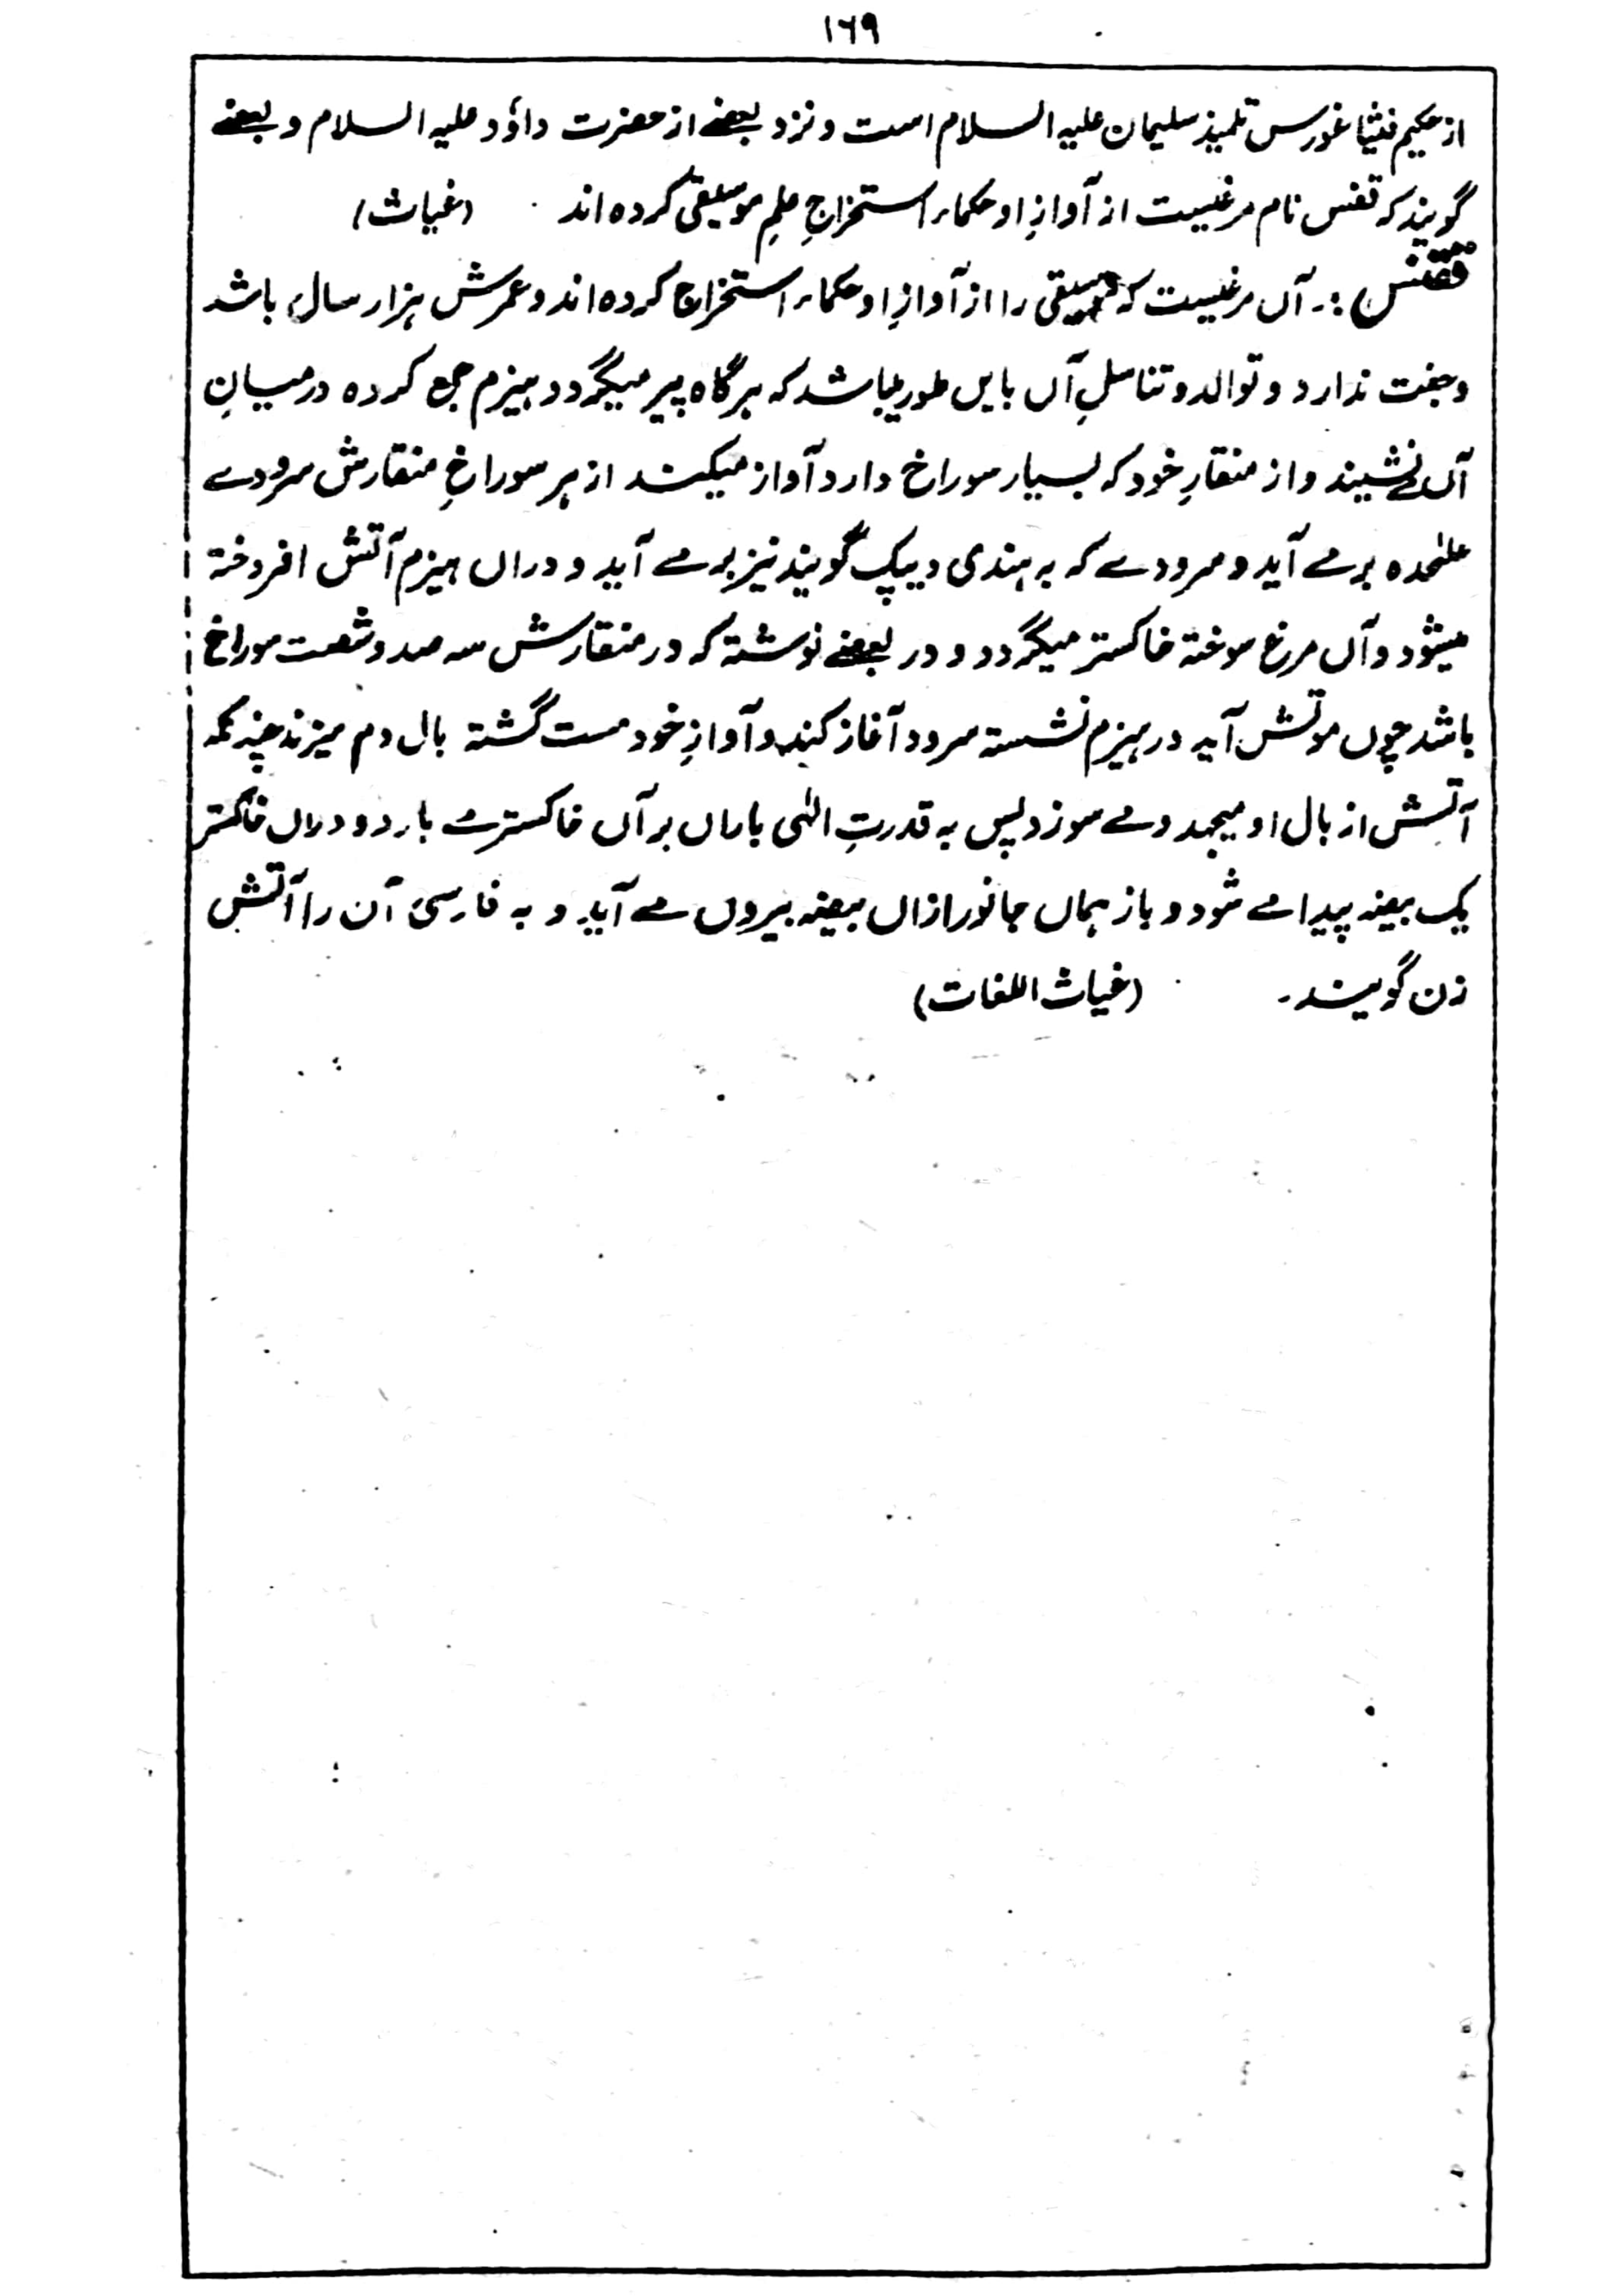 ۱۶۹
از حکیم فیثاغورس تلمیذ سلیمان علیہ السلام است و نزد بعضے از حضرت داؤد علیہ السلام و بعضے
گویند کہ ققنس نام مرغیست از آوازِ او حکماء استخراجِ علمِ موسیقی کردہ اند (غیاث)
ققنس :۔ آں مرغیست کہ موسیقی را از آوازِ او حکماء استخراج کردہ اند و عمرش ہزار سال باشد
و جفت ندارد و توالد و تناسلِ آں بایں طور یباشد کہ ہرگاہ پیر میگردد ہیزم جمع کردہ درمیانِ
آں نشیند و از منقارِ خود کہ بسیار سوراخ دارد آواز میکند از ہر سوراخِ منقارش سرودے
علٰحدہ برمے آید و سرودے کہ بہ ہندی دیپک گویند نیز برمے آید و دراں ہیزم آتش افروختہ
میشود و آں مرغ سوختہ خاکستر میگردد و در بعضے نوشتہ کہ در منقارش سہ صد و شصت سوراخ
باشد چوں موتش آید در ہیزم نشستہ سرود آغاز کند و آوازِ خود مست گشتہ بال و دم میزند چندانکہ
آتش از بال او میجہد و مے سوزد پس بہ قدرتِ الٰہی باراں بر آں خاکسترے بارد و دراں خاکستر
یک بیضہ پیدا مے شود و باز ہماں جانور ازاں بیضہ بیروں مے آید و بہ فارسی آن را آتش
زن گویند۔ (غیاث اللغات)